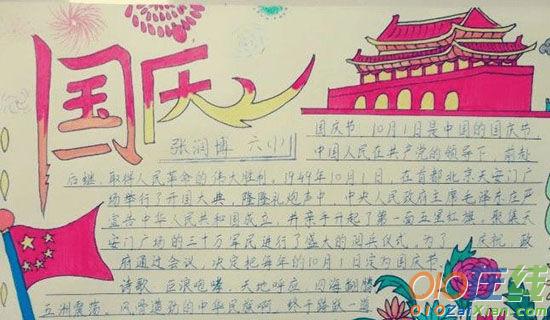 国庆
张润博 六(1)
国庆节，10月1日是中国的国庆节，
中国人民在共产党的领导下，前赴
后继，取得人民革命的伟大胜利，1949年10月1日，在首都北京天安门广
场举行了开国大典，隆隆礼炮声中，中央人民政府主席毛泽东庄严
宣告中华人民共和国成立，并亲手升起了第一面五星红旗，聚集天
安门广场的三十万军民进行了盛大的阅兵仪式，为了 庆祝，政
府通过会议，决定把每年的10月1日定为国庆节，
诗歌，巨浪咆哮，天地呼应，四海翻腾
五洲震荡，风雪
的中华民族啊，终于
在线
ZaiXian.com